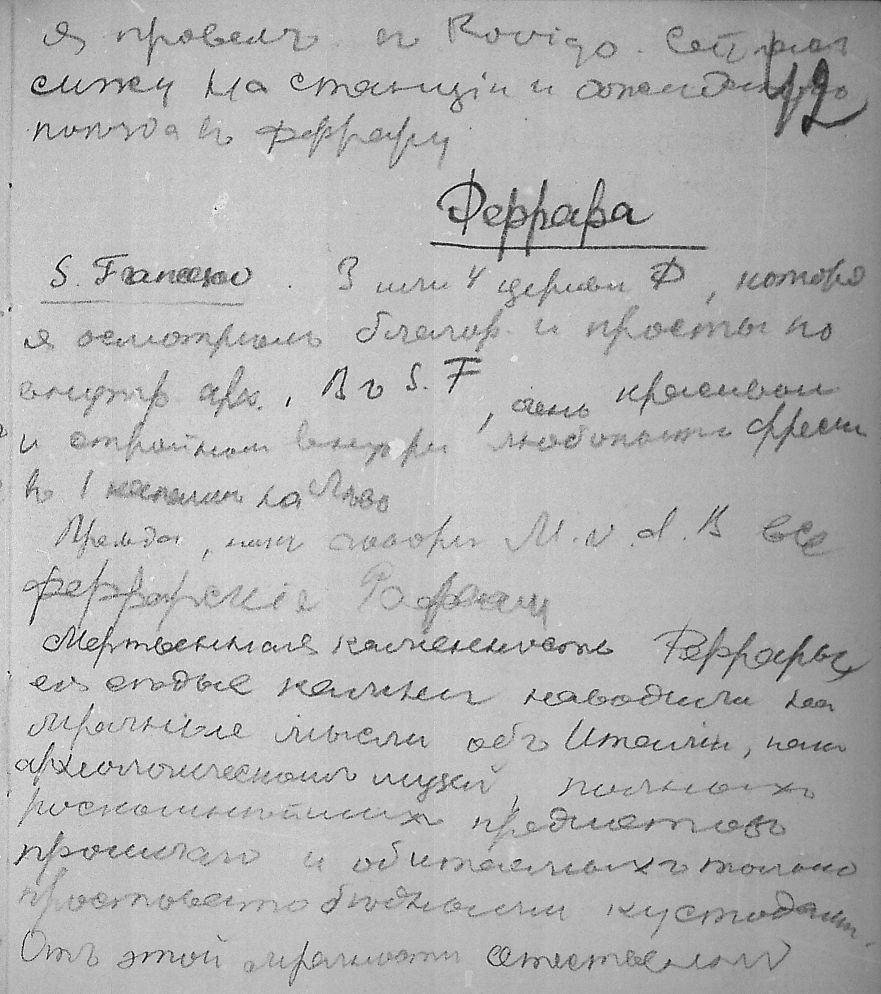 я провелъ въ Rovigo. Сейчас
сижу на станціи и ожидаю
12
поѣзда въ Феррару
Феррара
S. Francesco. 3 или 4 церкви Ф, которы
я осмотрѣлъ благор. и просты по
внутр арх., Въ S. F, очень красивом
и стройном внутри любопытн фрески
въ 1 капелле на лѣво
Правда, как говори М. v. d. В все
феррарскіе
Мертвенная каменность Феррары,
ея сѣдые камни наводили на
мрачные мысли объ Италіи, как
археологическомъ музеѣ, полныхъ
роскошнѣйшихъ предметовъ
прошлаго и обитаемыхъ только
простовато бѣдными кустодами.
Отъ этой мрачности естественны